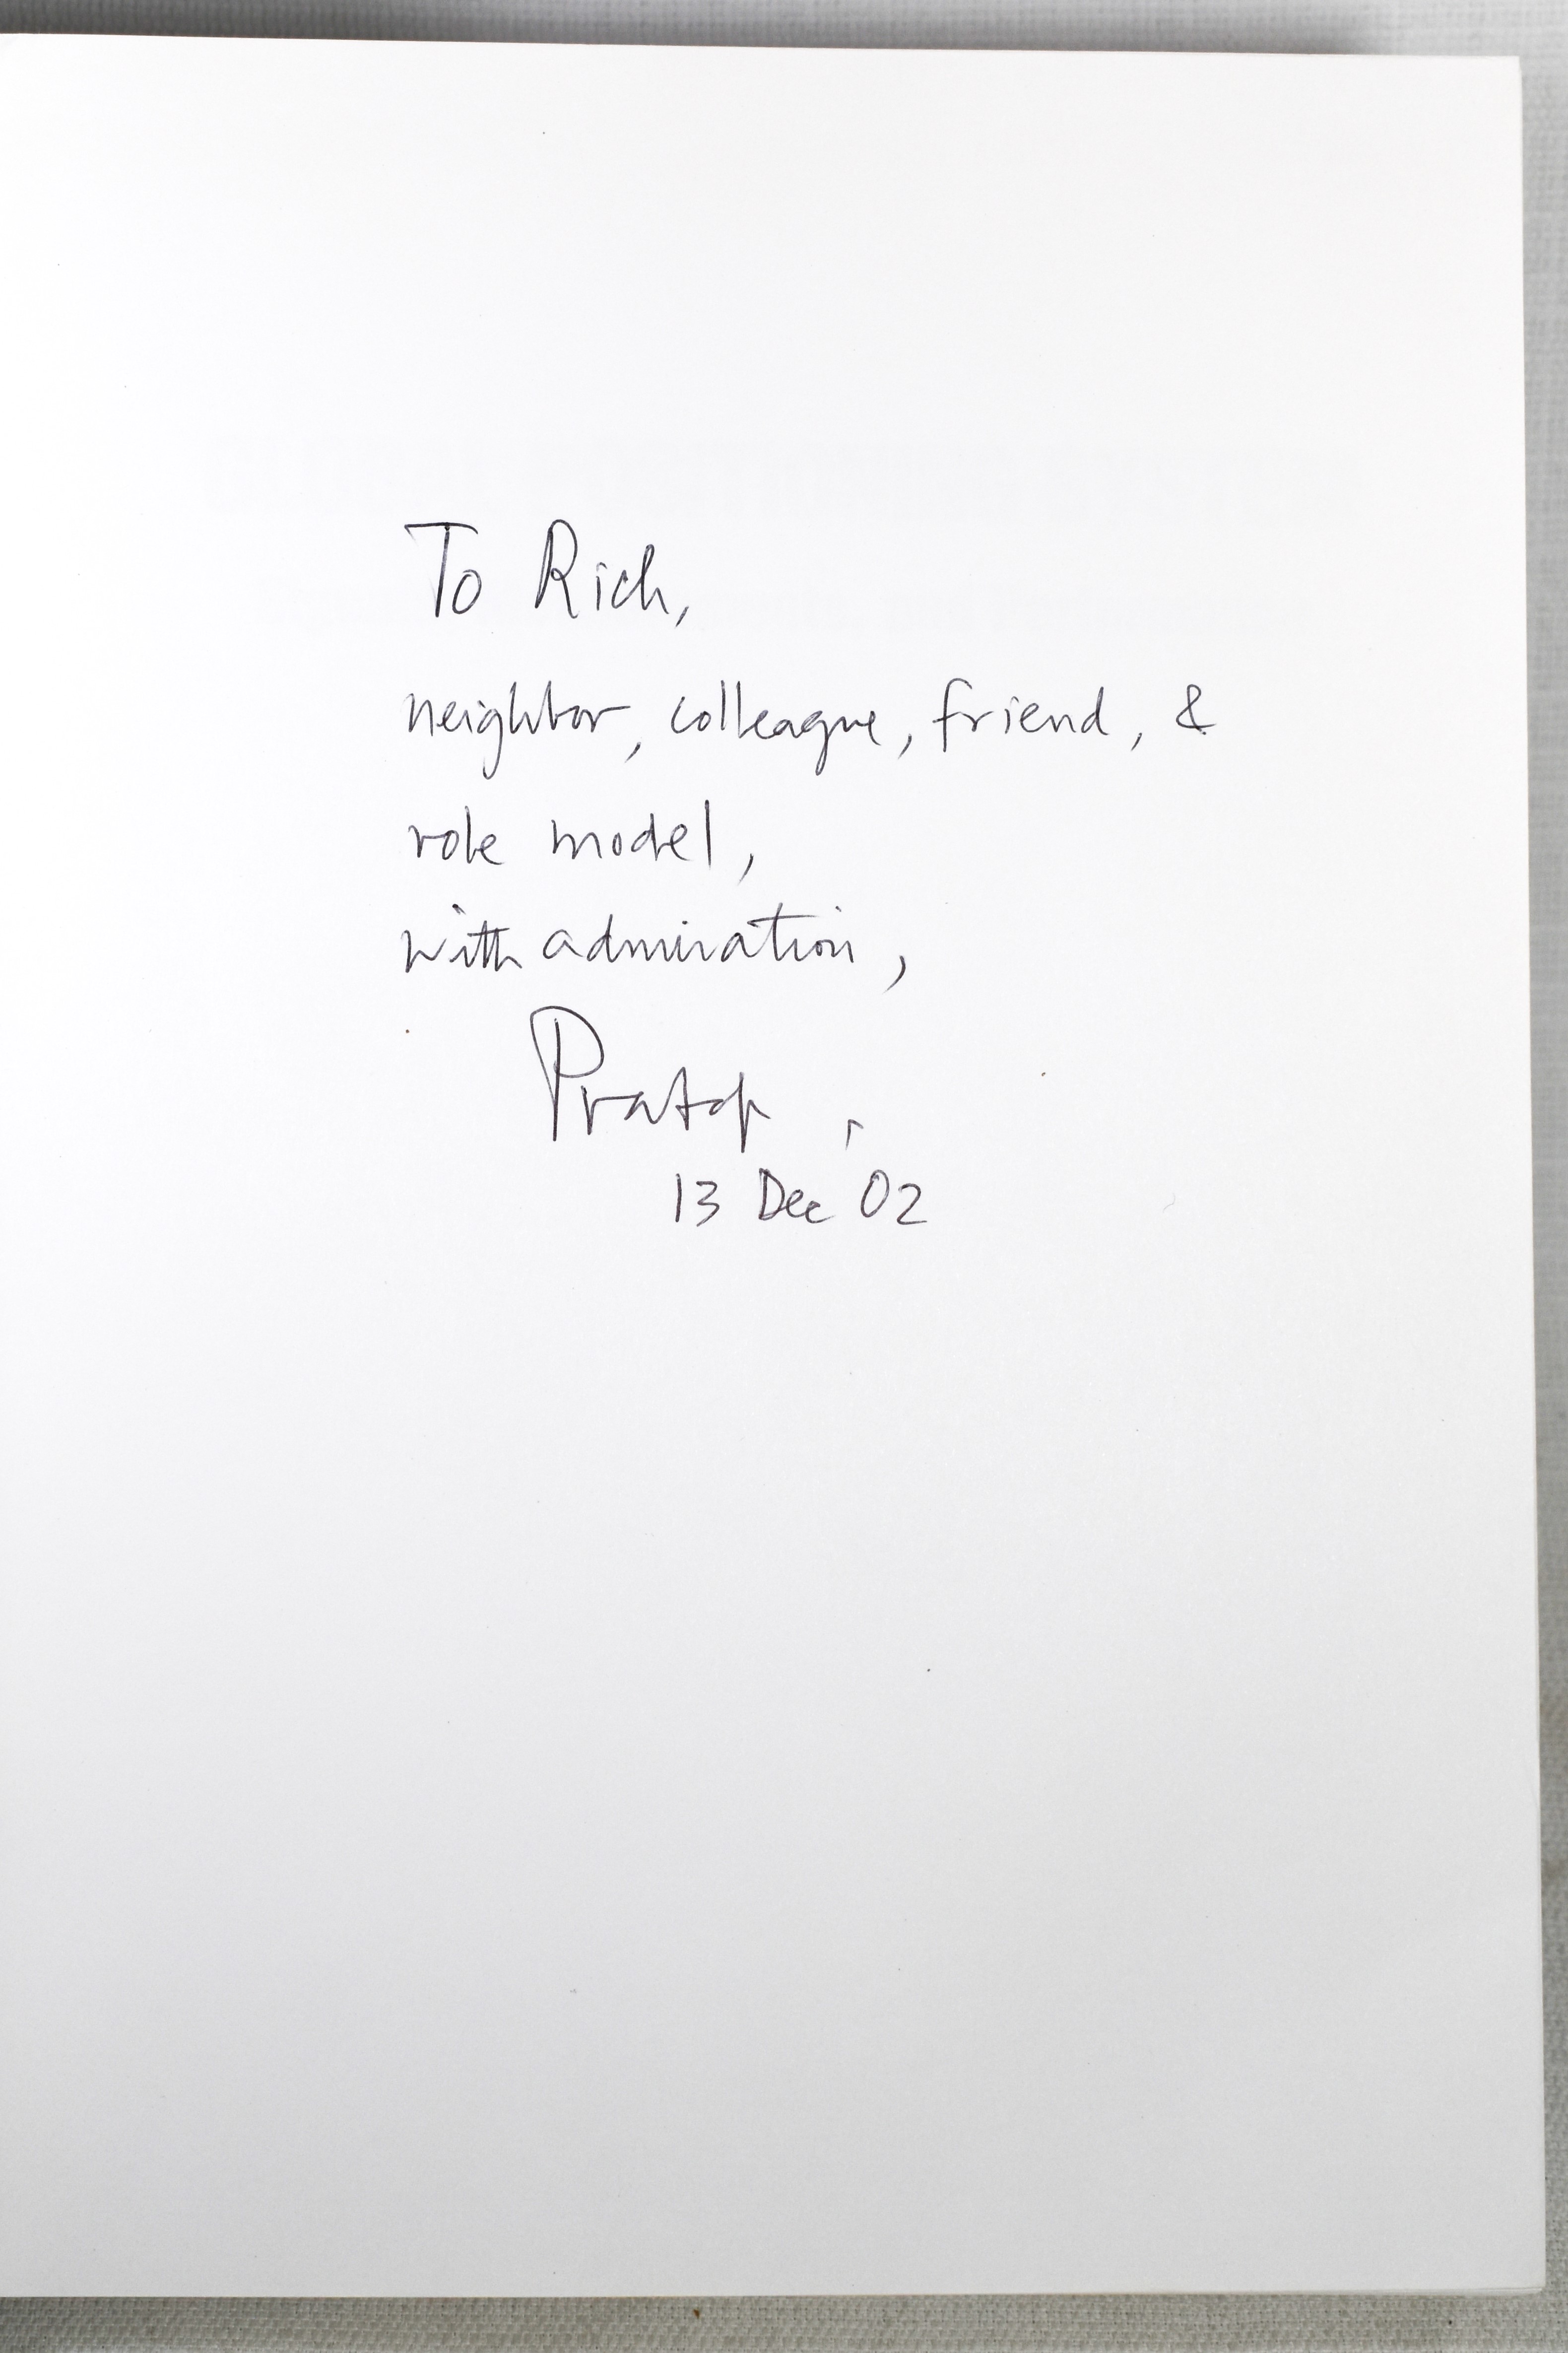 To Rich,
neighbor, colleague, friend, &
role model,
with admiration,
Pratap,
13 Dec '02